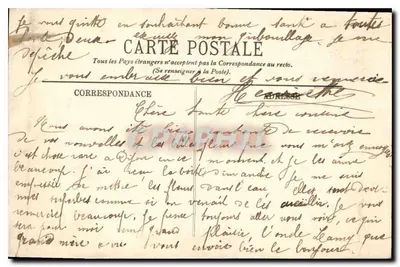 Je vous quitte en souhaitant bonne santé a toutes
toute Deux excusez mon gribouillage Je me
dépêche
CARTE POSTALE
Tous les Pays étrangers n'acceptent pas la Correspondance au recto.
(Se renseigner à la Poste).
Je vous embrasse bien et vous remercie
Henriette
CORRESPONDANCE
ADRESSE
Chère tante chère cousine
Nous avons été bien de recevoir
de vos nouvelles et les fleurs vous m'avez envoyé
c'est chose rare a Dijon en ce moment, et je les aime
beaucoup. J'ai la boîte Je me suis
empressée de mettre les fleurs dans l'eau elles sont
mes comme si on venait de les cueillir. Je vous
remercie beaucoup. Je pense toujours aller vous voir, ce qui
sera pour moi un grand plaisir, l'oncle que
grand mère a vous envoie bien le bonjour